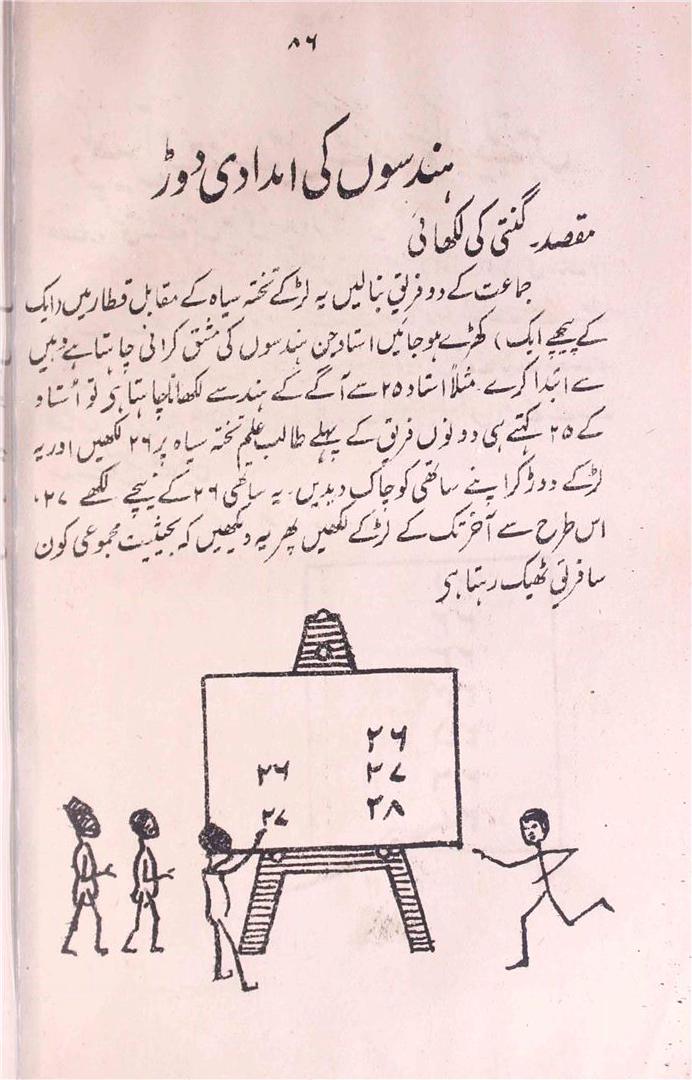 ۸۶
ہندسوں کی امدادی دوڑ
مقصد۔ گنتی کی لکھائی
جماعت کے دو فریق بنالیں یہ لڑکے تختہ سیاہ کے مقابل قطار میں (ایک
کے پیچھے ایک) کھڑے ہو جائیں استاد جن ہندسوں کی مشق کرانی چاہتا ہے وہیں
سے ابتدا کرے۔ مثلاً استاد ۲۵ سے آگے کے ہندسے لکھانا چاہتا ہی تو استاد
کے ۲۵ کہتے ہی دونوں فریق کے پہلے طالب علم تختہ سیاہ پر ۲۶ لکھیں اور یہ
لڑکے دوڑ کر اپنے ساتھی کو چاک دیدیں۔ یہ ساتھی ۲۶ کے نیچے لکھے ۲۷۔
اس طرح سے آخر تک کے لڑکے لکھیں پھر یہ دیکھیں کہ بحیثیت مجموعی کون
سا فریق ٹھیک رہتا ہی
۲۶
۲۶ ۲۷
۲۷ ۲۸